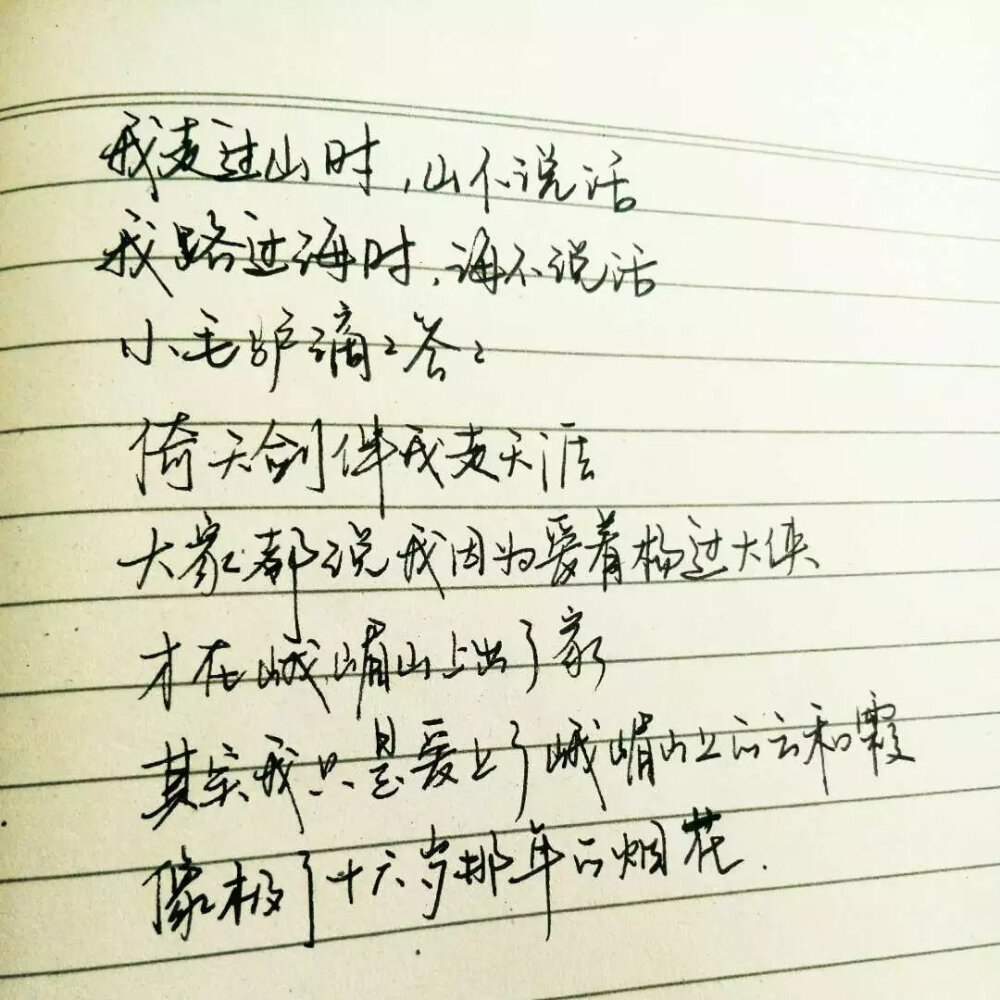 我走过山时,山不说话
我路过海时,海不说话
小毛驴滴々答々
倚天剑伴我走天涯
大家都说我因为爱着杨过大侠
才在峨嵋山上出了家
其实我只是爱上了峨嵋山上的云和霞
像极了十六岁那年的烟花.